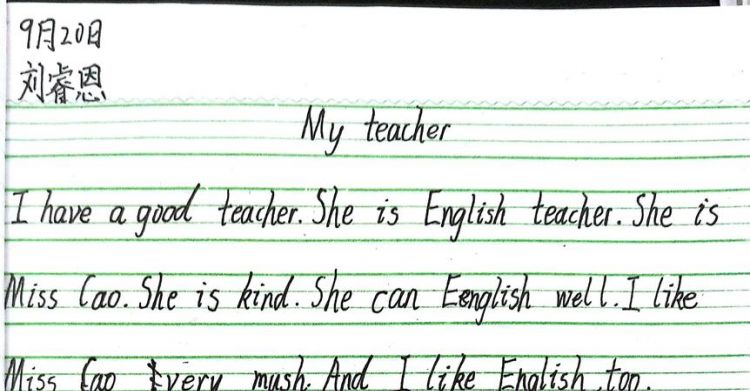 9月20日
刘睿恩
My teacher
I have a good teacher. She is English teacher. She is
Miss Cao. She is kind. She can Eenglish well. I like
Miss Cao very mush. And I like English too.